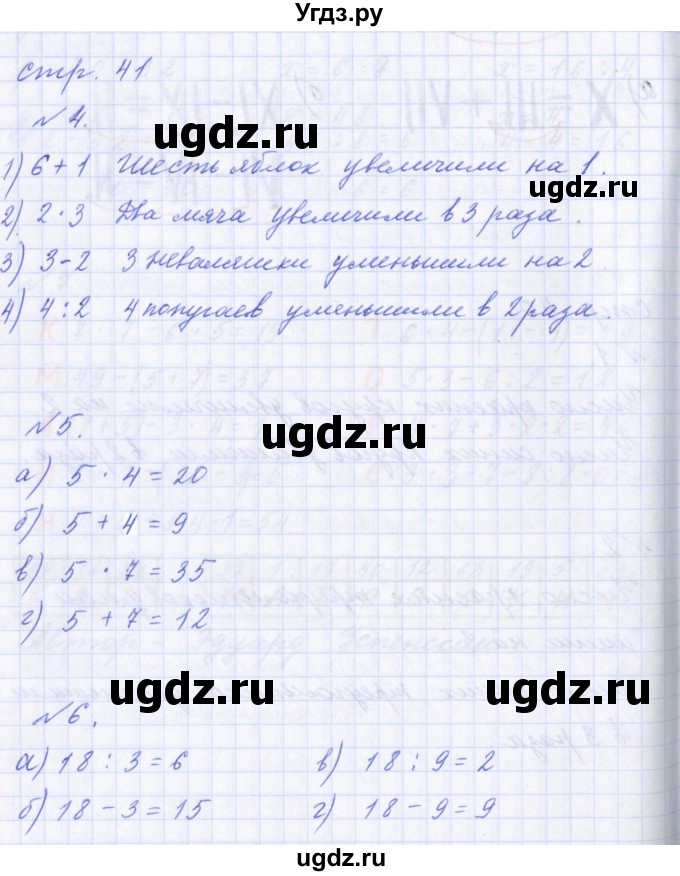 Угдз.ру
стр. 41
№4.
ugdz.ru
1) 6+1 Шесть яблок увеличили на 1.
2) 2·3 Два мяча увеличили в 3 раза.
ugdz.ru
3) 3-2 3 неваляшки уменьшили на 2.
4) 4:2 4 попугаев уменьшили в 2 раза.
№5.
ugdz.ru
а) 5 · 4 = 20
б) 5 + 4 = 9
в) 5 · 7 = 35
г) 5 + 7 = 12
ugdz.ru
ugdz.ru
№6.
а) 18 : 3 = 6 в) 18 : 9 = 2
б) 18 - 3 = 15 г) 18 - 9 = 9
ugdz.ru